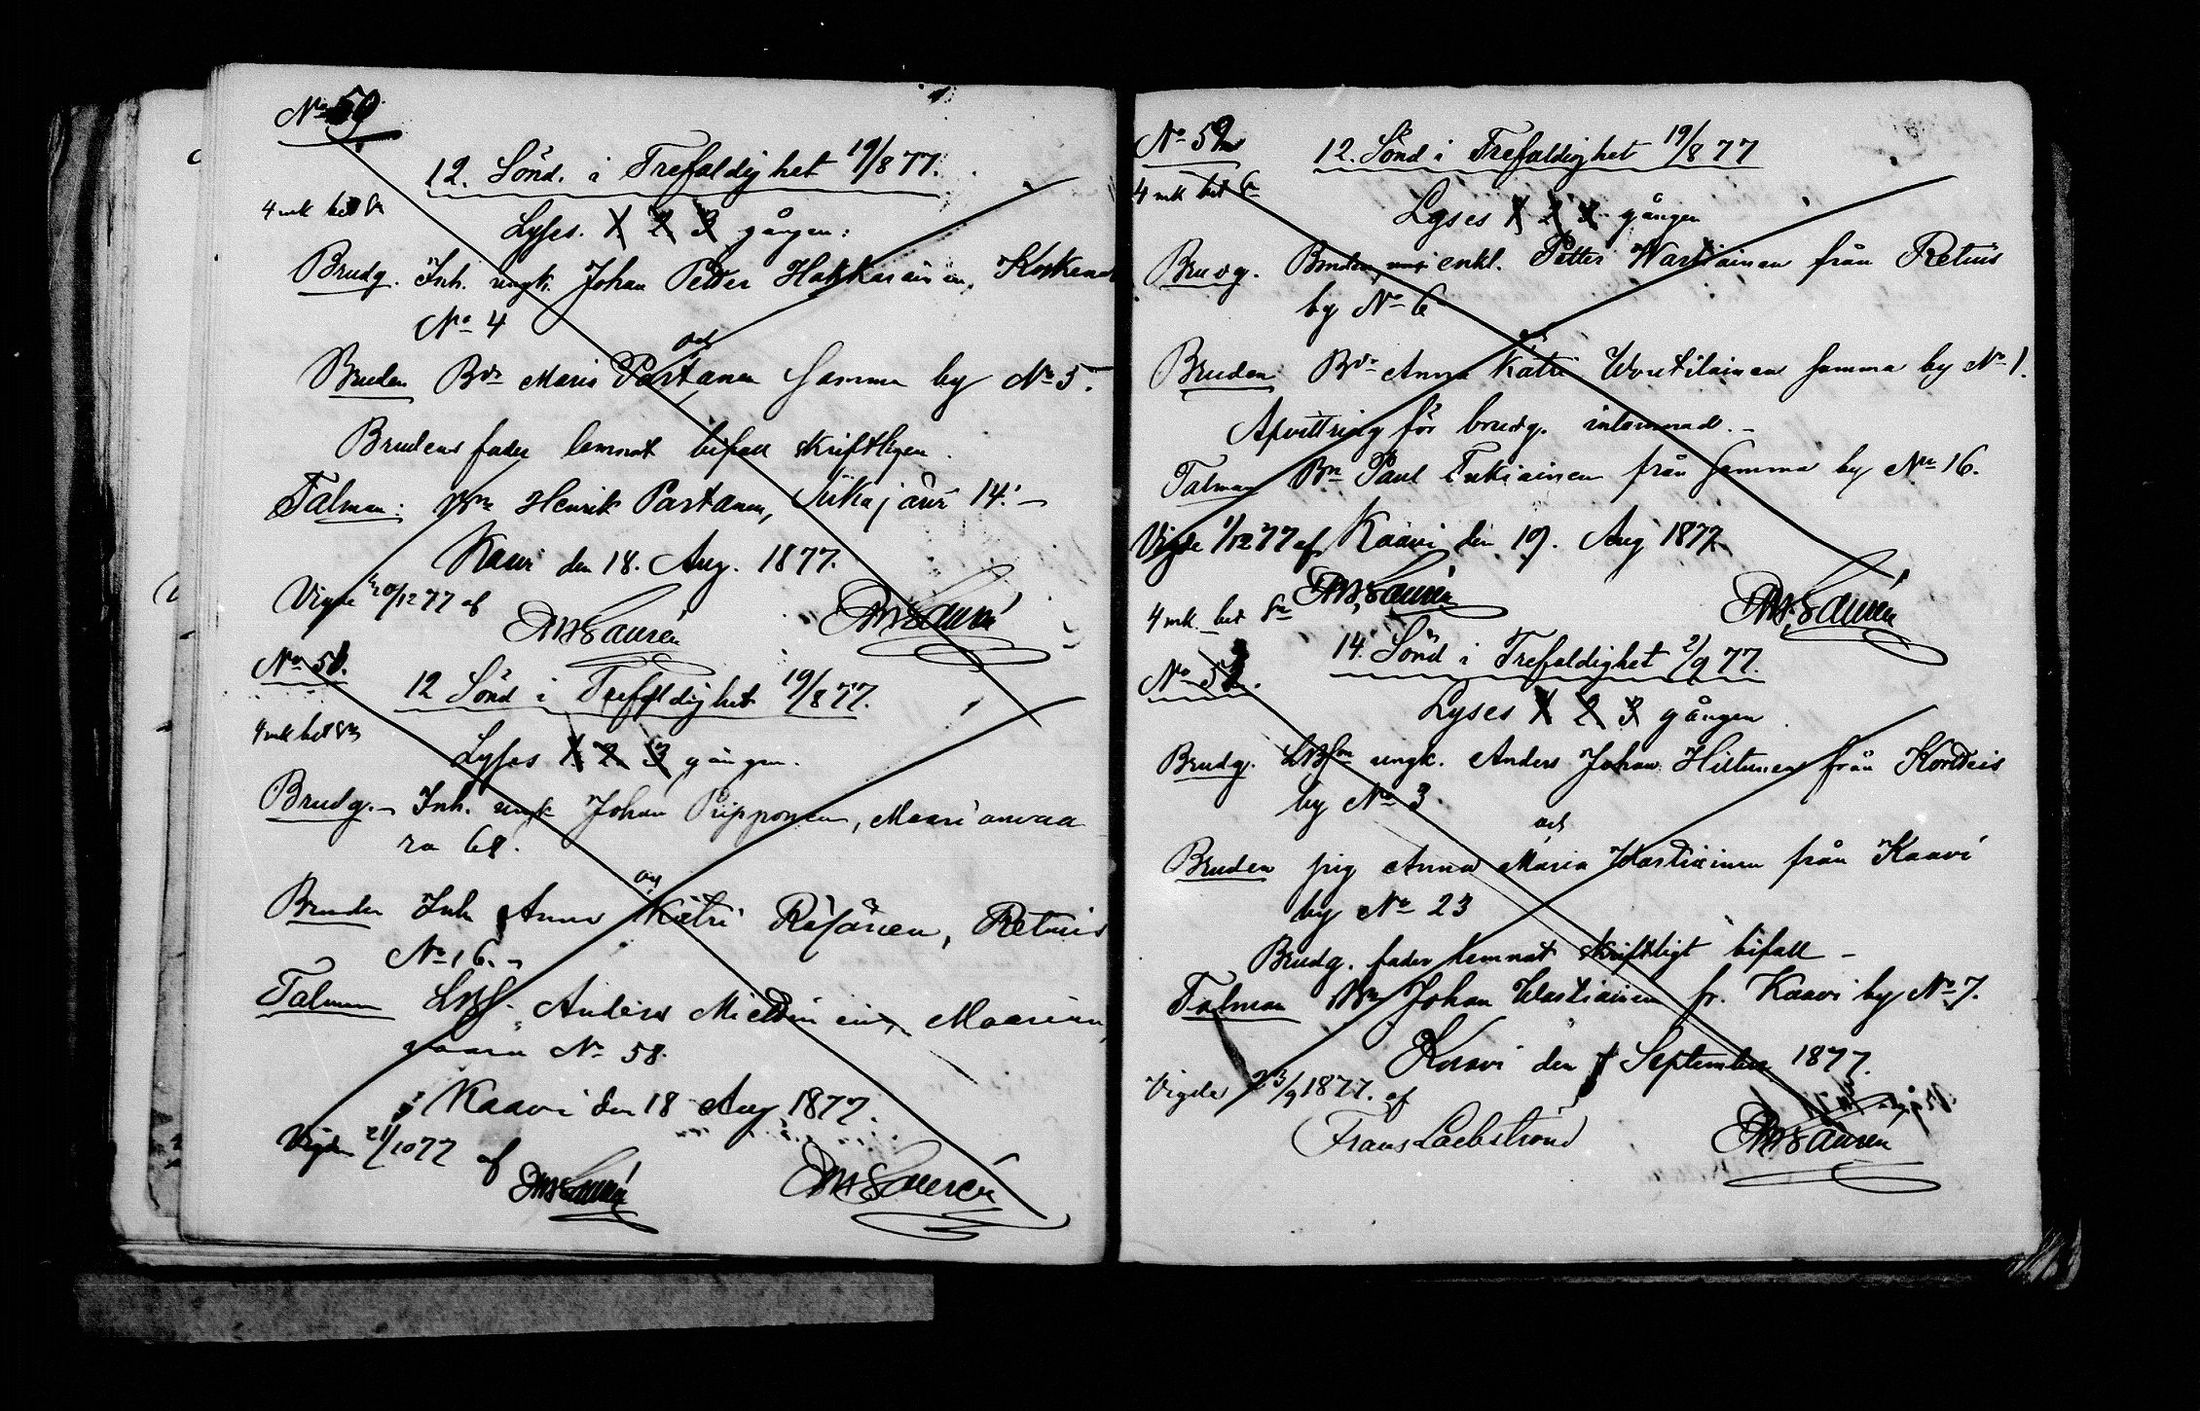 No 50
12. Sönd. i Trefaldighet 19/8 77.
4 mk bet
Lyses. 1 2 3 gången:
Brudg. Inh. ungk. Johan Petter Hakkarainen,
No 4
och
Bruden Bdr Maria Partanen samma by No 5.
Brudens fader lemnat bifall skriftligen.
Talman: Bn Henrik Partanen, Siikajärvi 14. –
Kaavi den 18. Aug. 1877.
Vigde 20/12 77 af
No 51.
12 Sönd i Trefaldighet 19/8 77.
4 mk bet
Lyses 1 2 3 gången.
Brudg. – Inh. ungk Johan Piipponen, Maarianvaa
ra 68.
och
Bruden Inh Anna Katri Räsänen, Retuis
No 16. –
Talman Anders Miettinen, Maarian
vaara No 58.
Kaavi den 18 Aug 1877.
Vigde 21/10 77 af
No 52
12. Sönd i Trefaldighet 19/8 77
4 mk bet
Lyses 1 2 3 gången
Brudg. enkl. Petter Wartiainen från Retuis
by No 6
och
Bruden Bdr Anna Katri Woutilainen samma by No 1.
Afvittring för brudg. inlemnad. –
Talman Bn Paul Tukiainen från samma by No 16.
Vigde 1/12 77 af Kaavi den 19. Aug 1877
4 mk bet
14. Sönd i Trefaldighet 2/9 77.
No 53.
Lyses 1 2 3 gången
Brudg. ungk. Anders Johan Hiltunen från Kortteis
by No 3.
och
Bruden pig Anna Maria Wartiainen från Kaavi
by No 23
Brudg. fader lemnat skriftligt bifall –
Talman Bn Johan Wartiainen fr. Kaavi by No 7.
Kaavi den 1 September 1877.
Vigde 23/9 1877. af